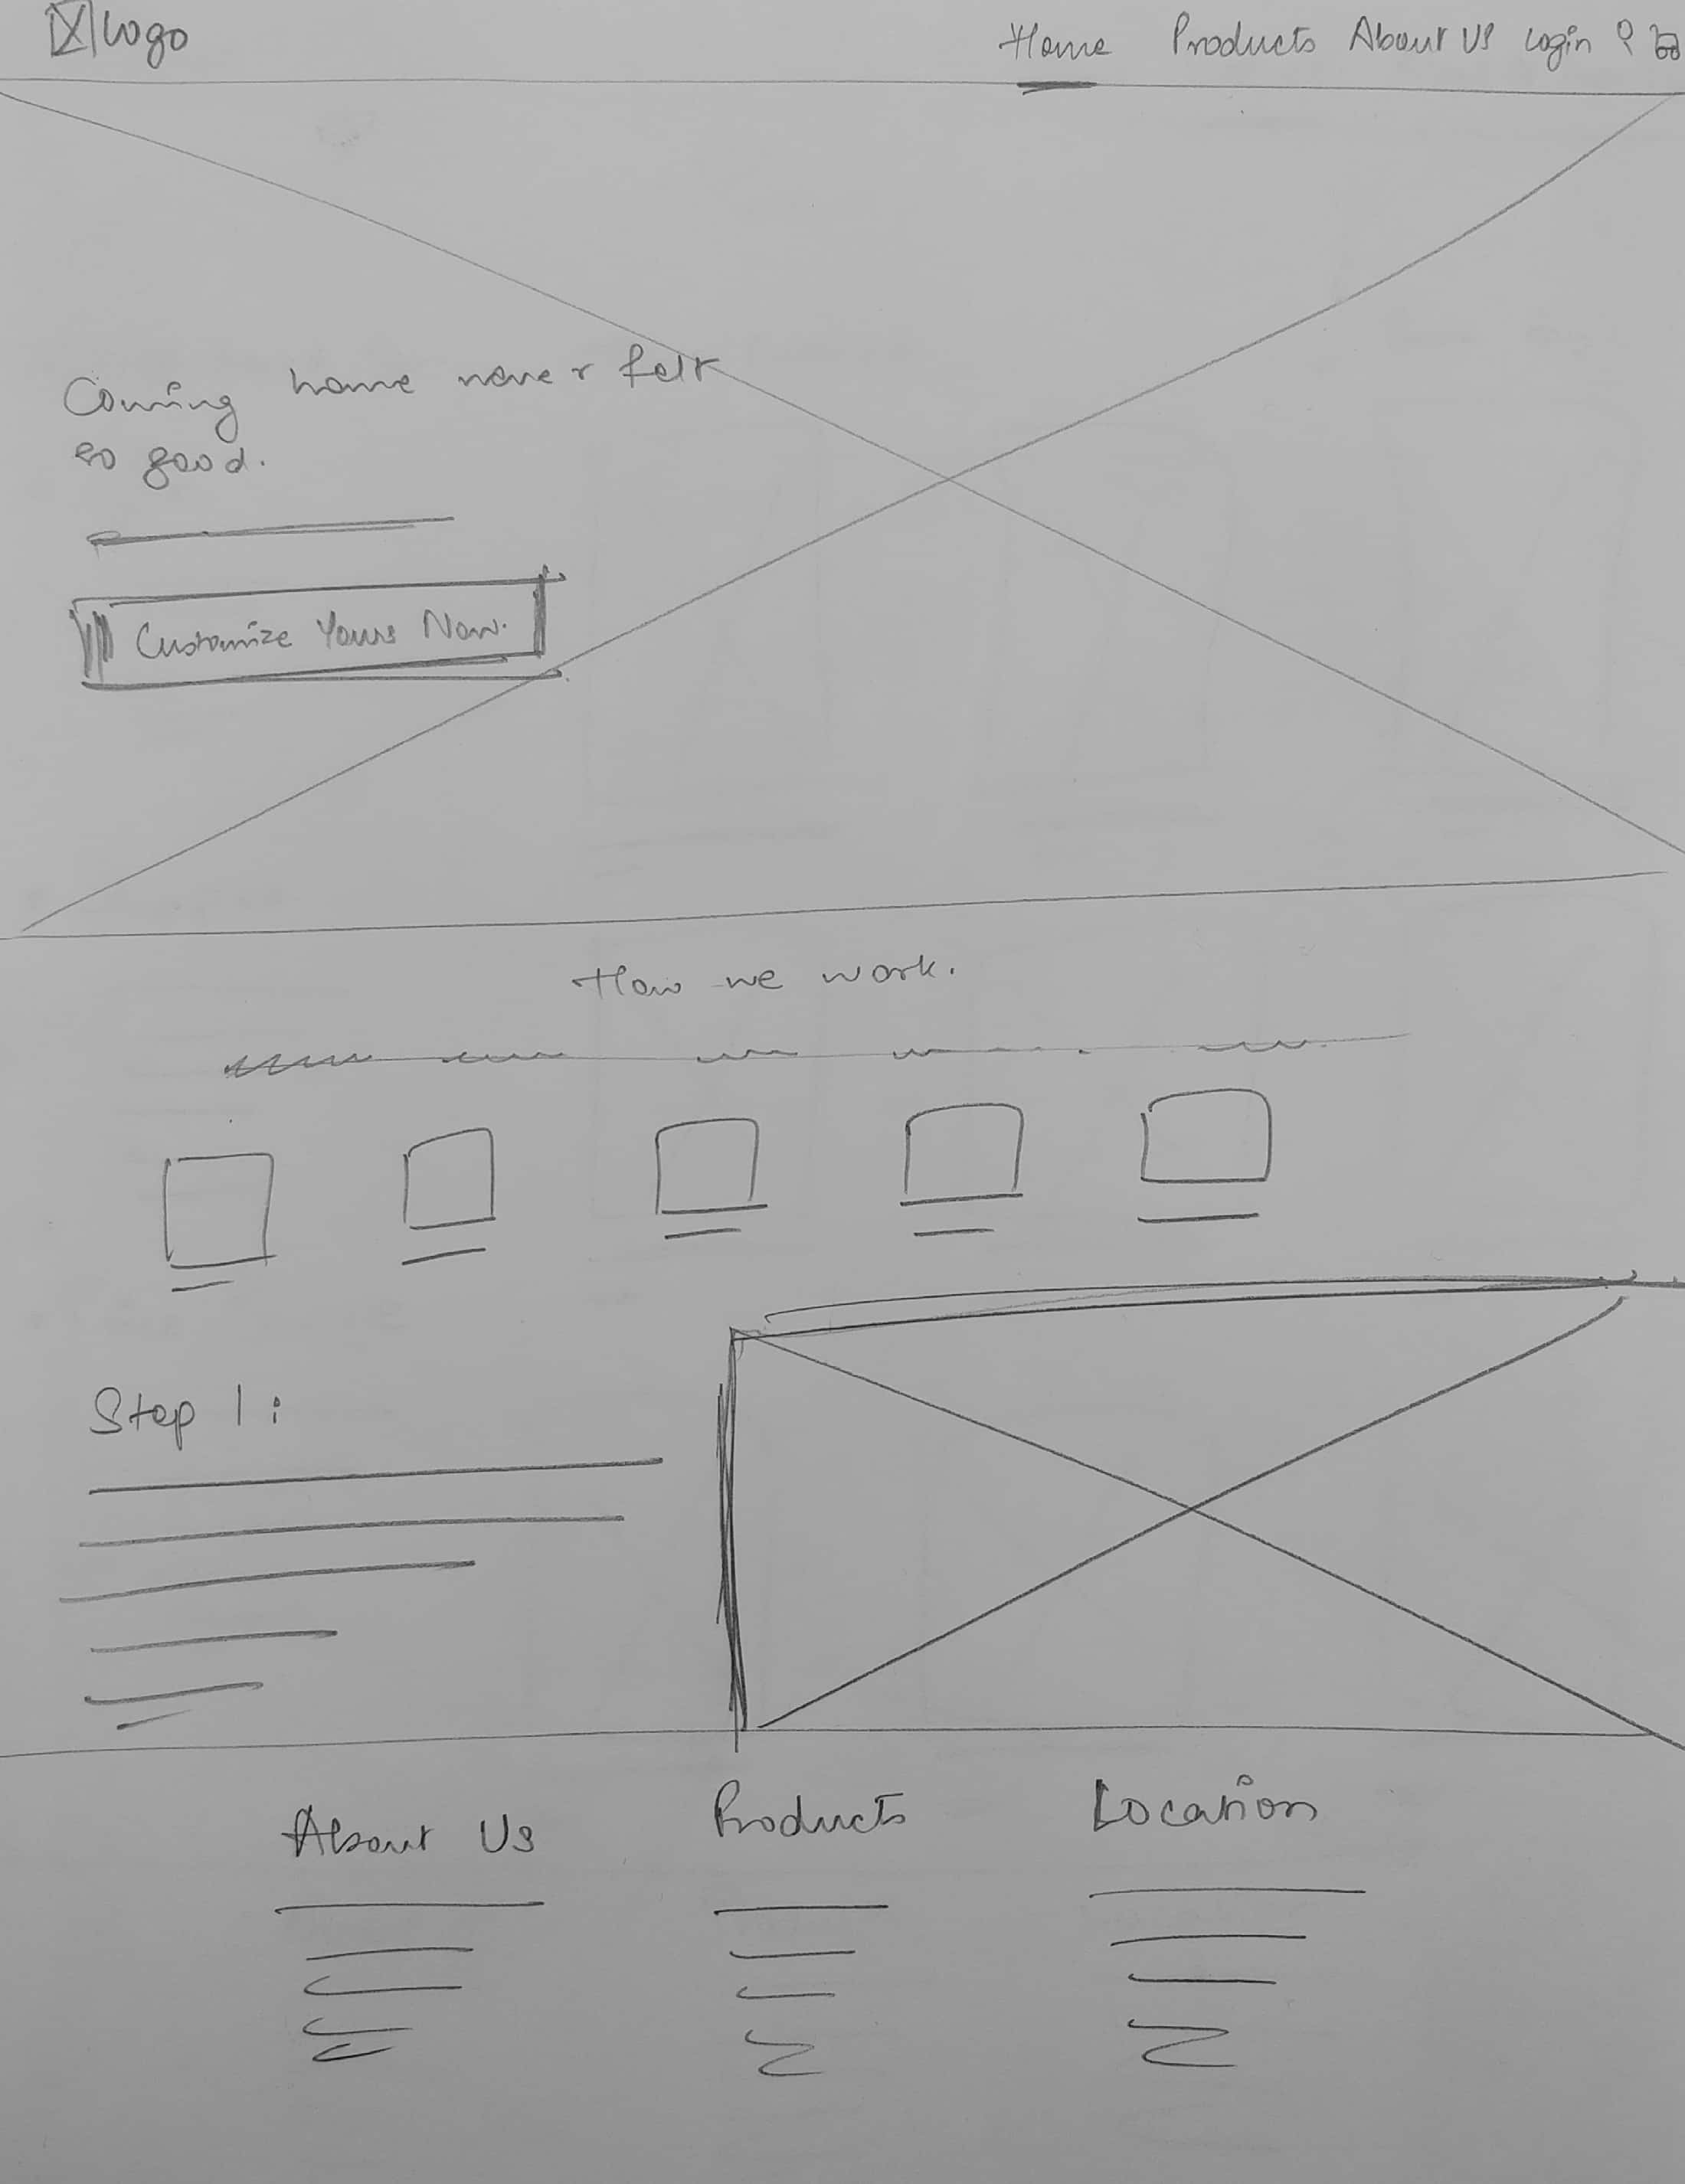 Logo
Home Products About Us Login
Coming home never felt
so good.
Customize Yours Now.
How we work.
Step 1:
About Us Products Location